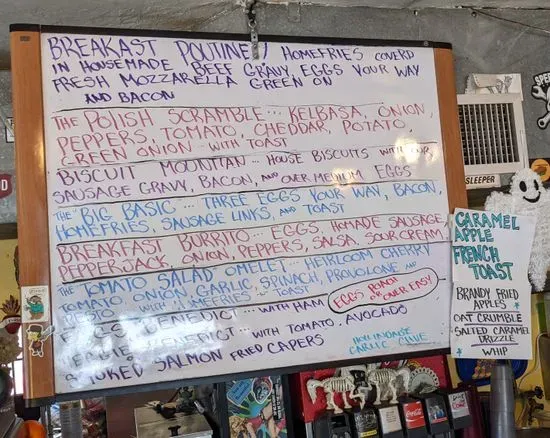 BREAKAST POUTINE! HOMEFRIES COVERD
IN HOUSEMADE BEEF GRAVY, EGGS YOUR WAY
FRESH MOZZARELLA GREEN ON
AND BACON
THE POLISH SCRAMBLE... KELBASA, ONION,
PEPPERS, TOMATO, CHEDDAR, POTATO,
GREEN ONION... WITH TOAST
BISCUIT MOUNTIAN... HOUSE BISCUITS WITH OUR
SAUSAGE GRAVY, BACON, AND OVER MEDIUM EGGS
THE "BIG BASIC"... THREE EGGS YOUR WAY, BACON,
HOMEFRIES, SAUSAGE LINKS, AND TOAST
BREAKFAST BURRITO... EGGS, HOMADE SAUSAGE,
PEPPERJACK, ONION, PEPPERS, SALSA, SOUR CREAM,
THE TOMATO SALAD OMELET... HEIRLOOM CHERRY
TOMATO, ONION, GARLIC, SPINACH, PROVOLONE AND
PESTO... WITH TOAST
EGGS BENEDICT... WITH HAM
BENEDICT... WITH TOMATO, AVOCADO
SMOKED SALMON FRIED CAPERS
EGGS
OR OVER EASY
GARLIC
CARAMEL
APPLE
FRENCH
TOAST
BRANDY FRIED
APPLES
OAT CRUMBLE
SALTED CARAMEL
DRIZZLE
WHIP
SLEEPER
Coca-Cola